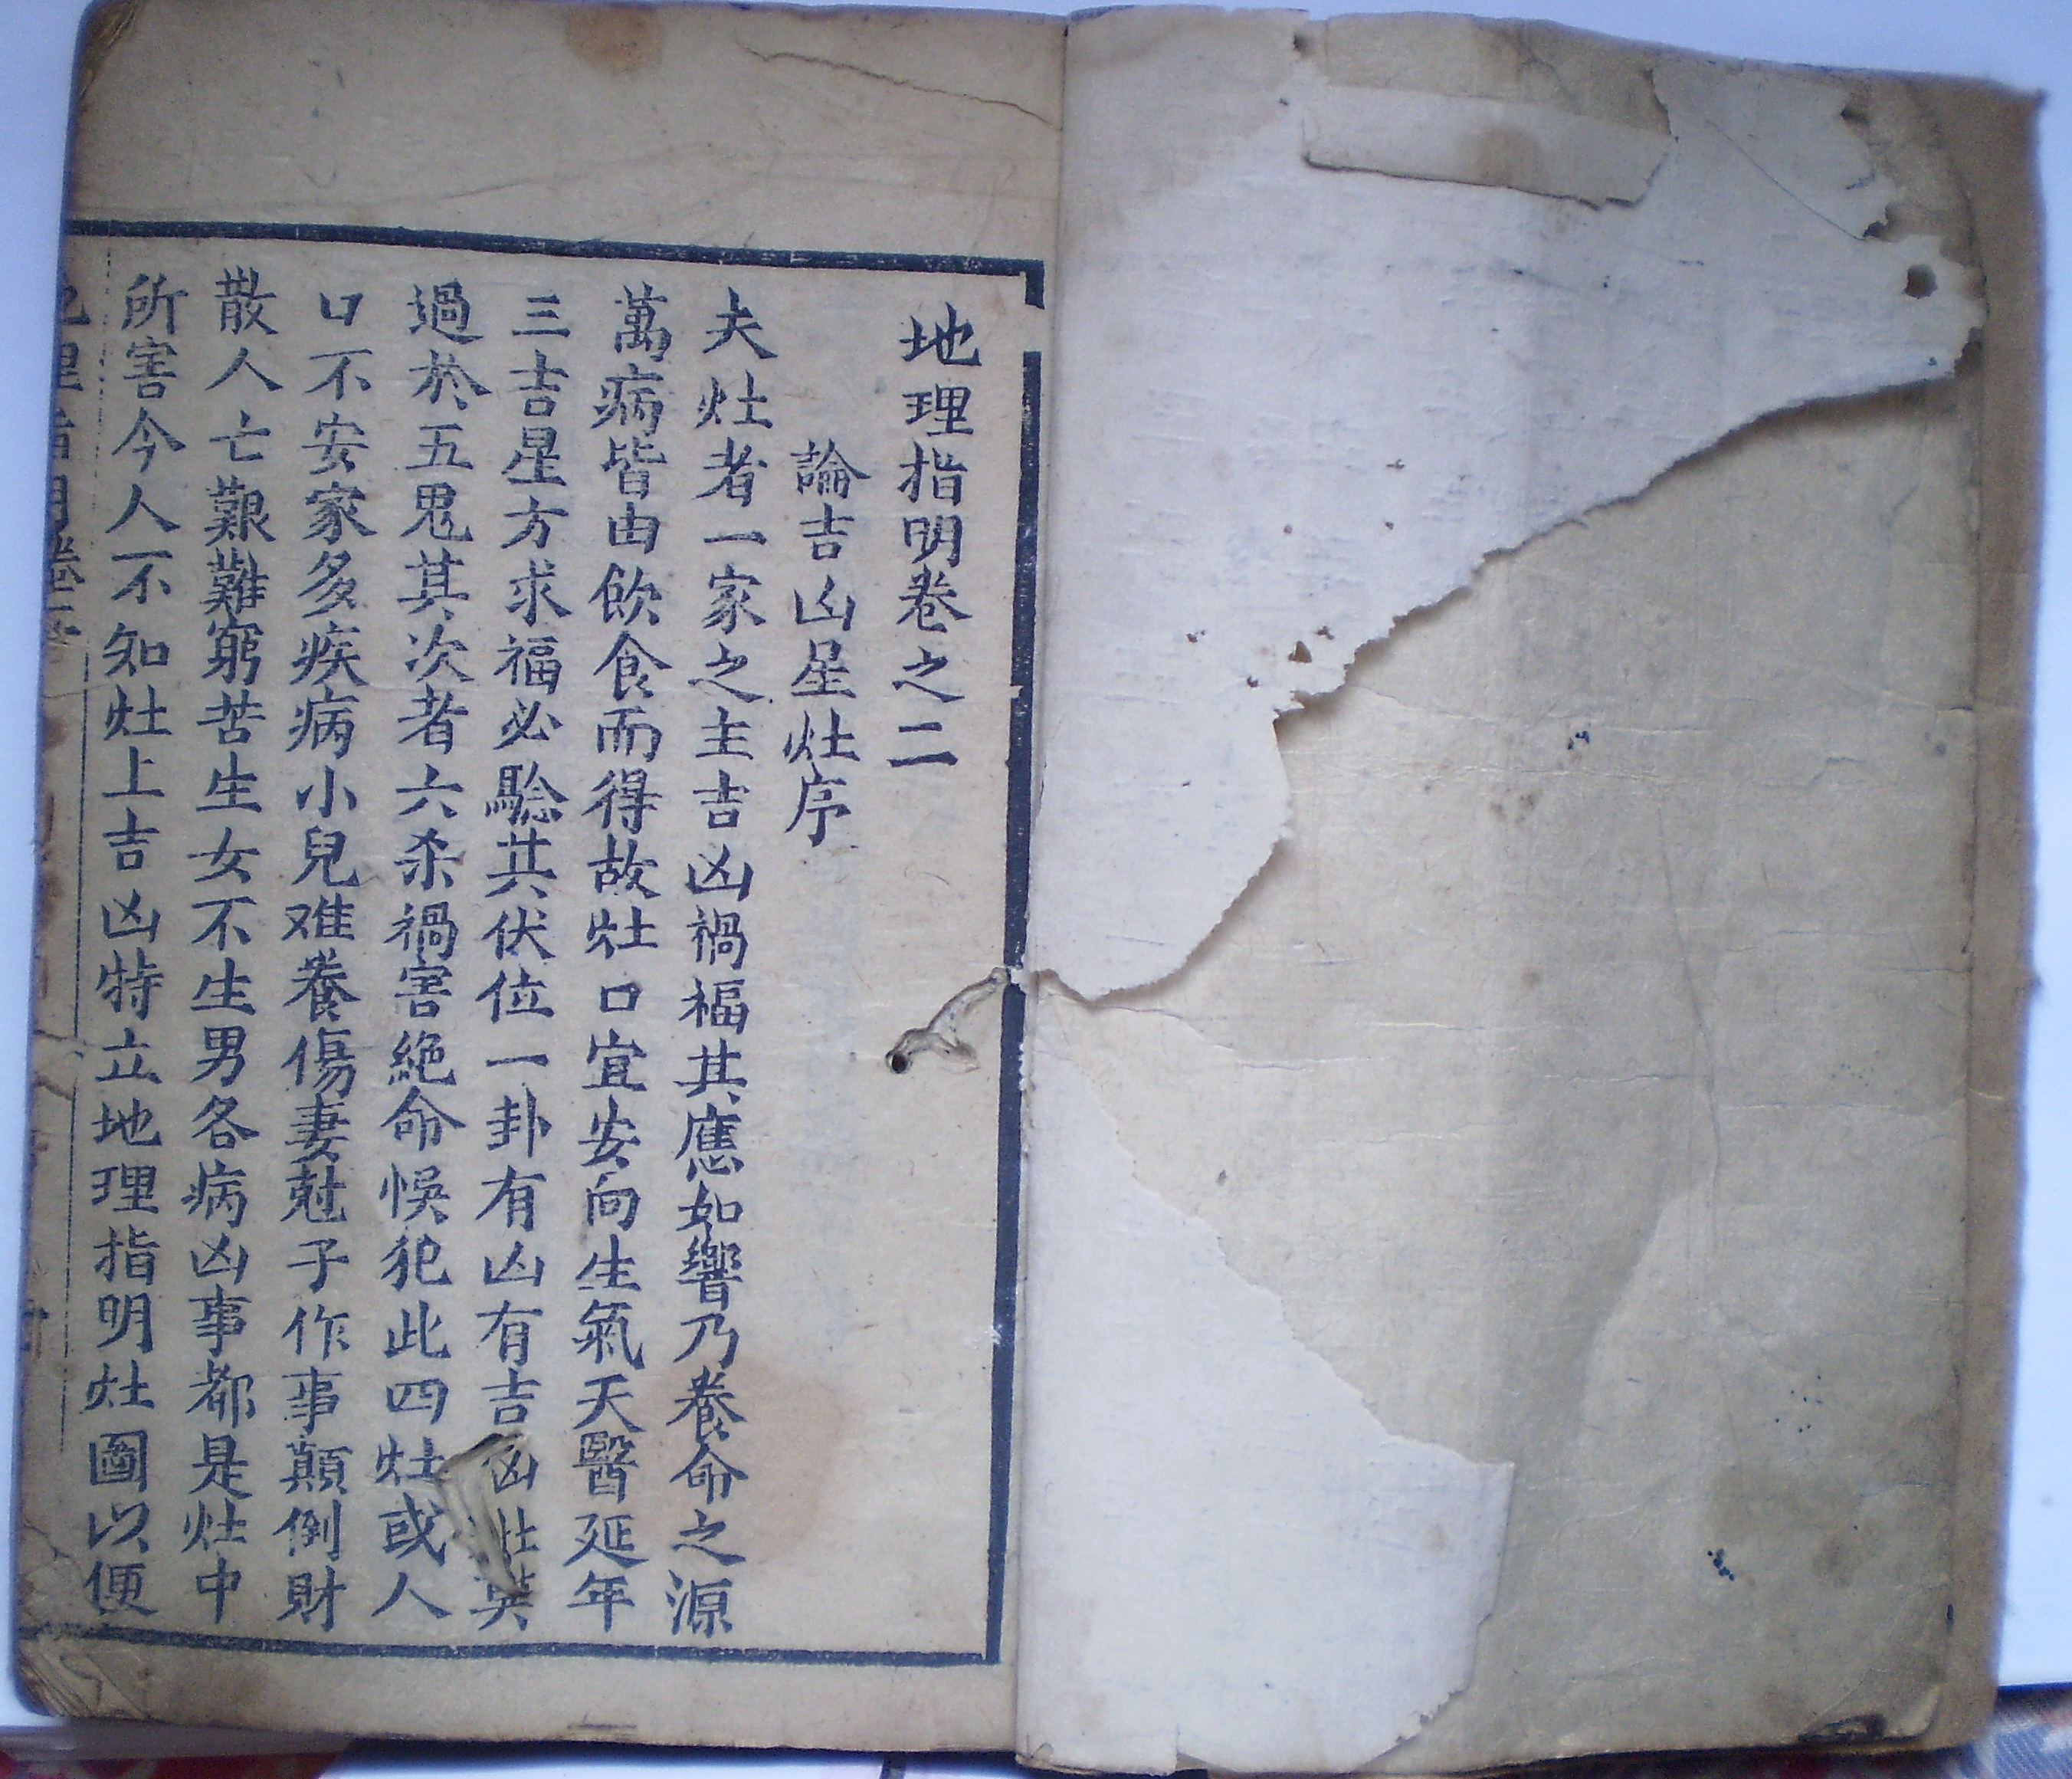 地理指明卷之二
論吉凶星灶序
夫灶者一家之主吉凶禍福其應如響乃養命之源
萬病皆由飲食而得故灶口宜安向生氣天醫延年
三吉星方求福必騐其伏位一卦有凶有吉凶灶莫
過於五鬼其次者六杀禍害絕命悞犯此四灶或人
口不安家多疾病小兒难養傷妻尅子作事顛倒財
散人亡艱難窮苦生女不生男各病凶事都是灶中
所害今人不知灶上吉凶特立地理指明灶圖以便
地理指明卷